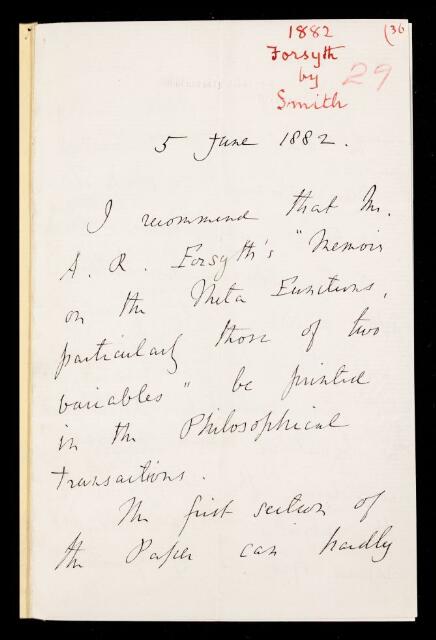 1882
(36
Forsyth
by
29
Smith
5 June 1882.
I recommend that Mr.
A. R. Forsyth's "Memoir
on the Theta Functions,
particularly those of two
variables" be printed
in the Philosophical
Transactions.
The first section of
the Paper can hardly